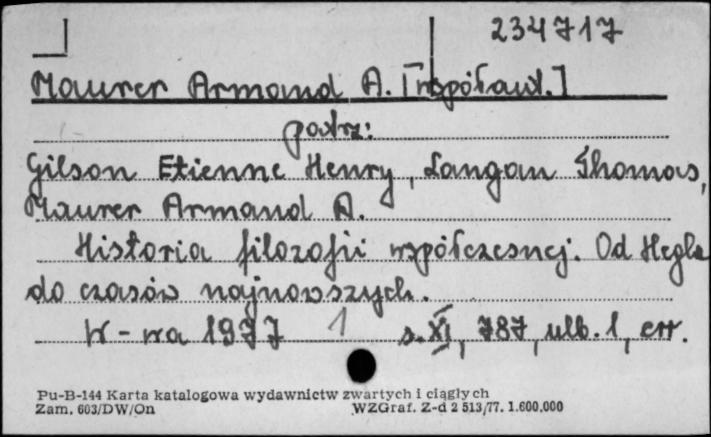 234717
Maurer Armand A. [współaut.]
patrz:
Gilson Etienne Henry, Langan Thomas,
Maurer Armand A.
Historia filozofii współczesnej. Od Hegla
do czasów najnowszych.
W-wa 1977 1 s. XI, 787, ulb. 1, err.
Pu-B-144 Karta katalogowa wydawnictw zwartych i ciągłych
Zam. 603/DW/On WZGraf. Z-d 2 513/77. 1.600.000